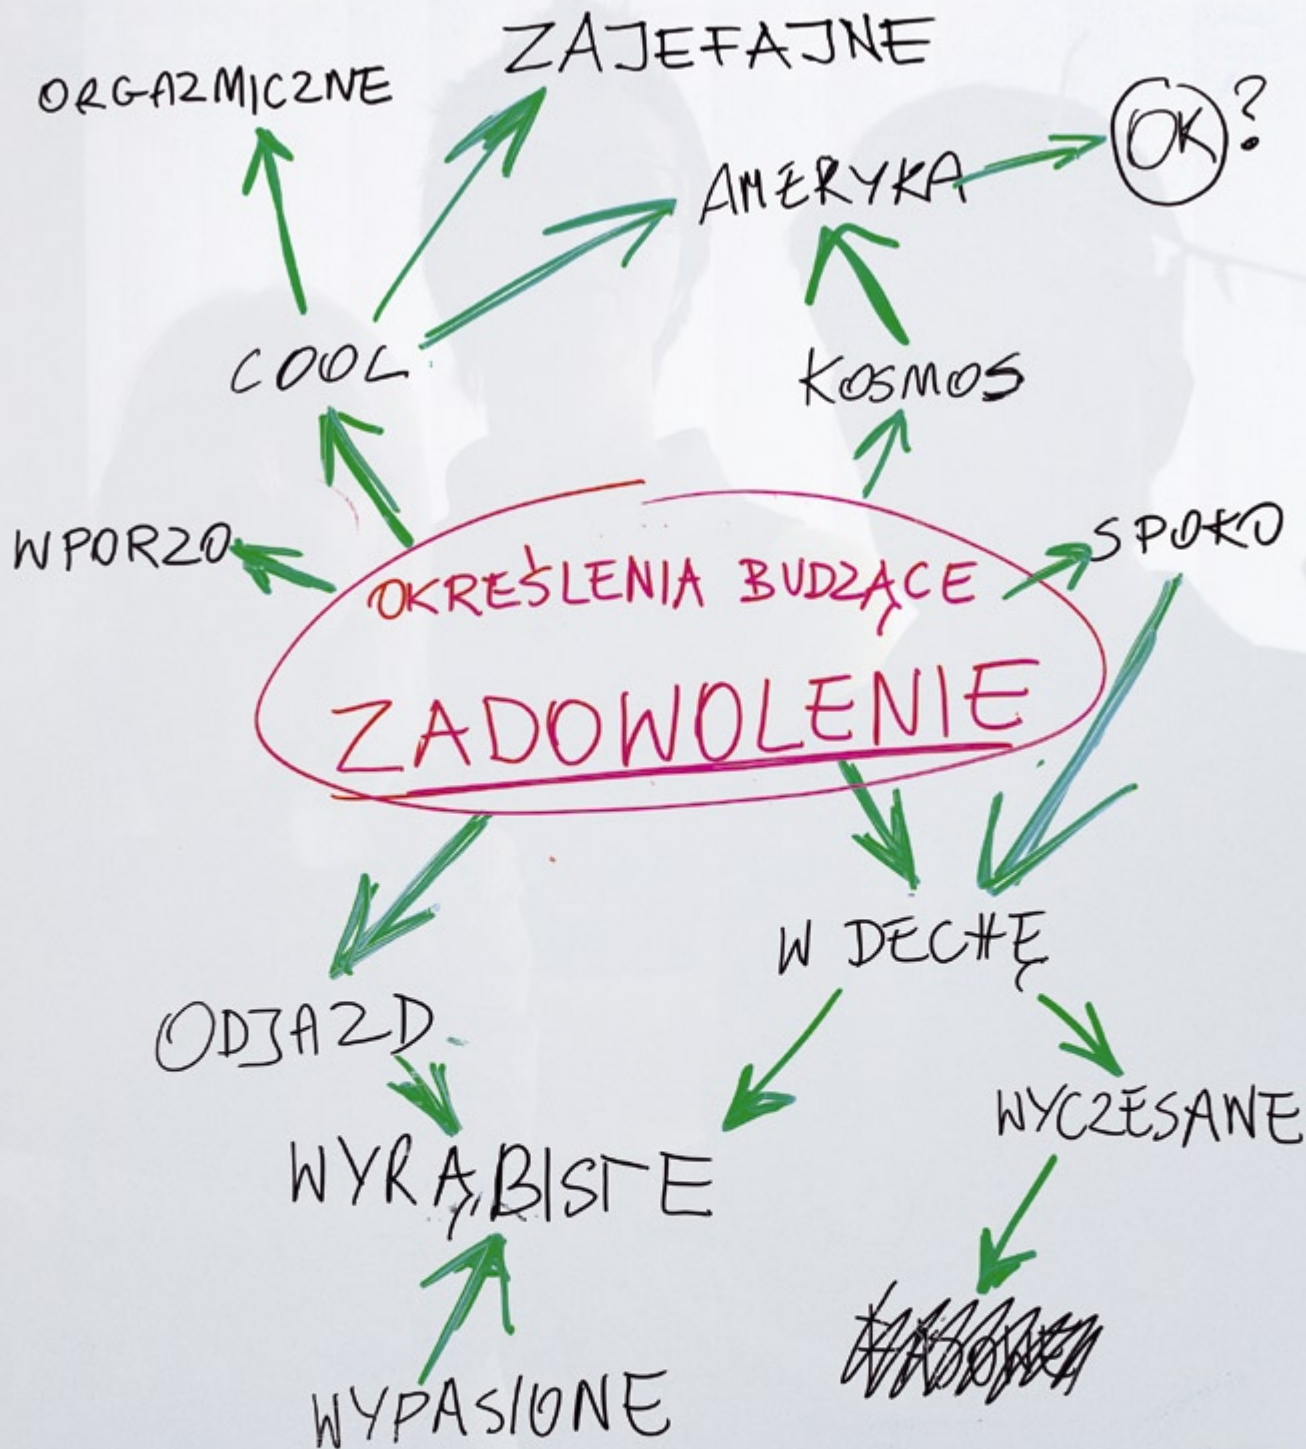 ZAJEFAJNE
ORGAZMICZNE
OK?
AMERYKA
COOL
KOSMOS
WPORZO
SPOKO
OKREŚLENIA BUDZĄCE
ZADOWOLENIE
W DECHĘ
ODJAZD
WYCZESANE
WYRĄBISTE
WYPASIONE